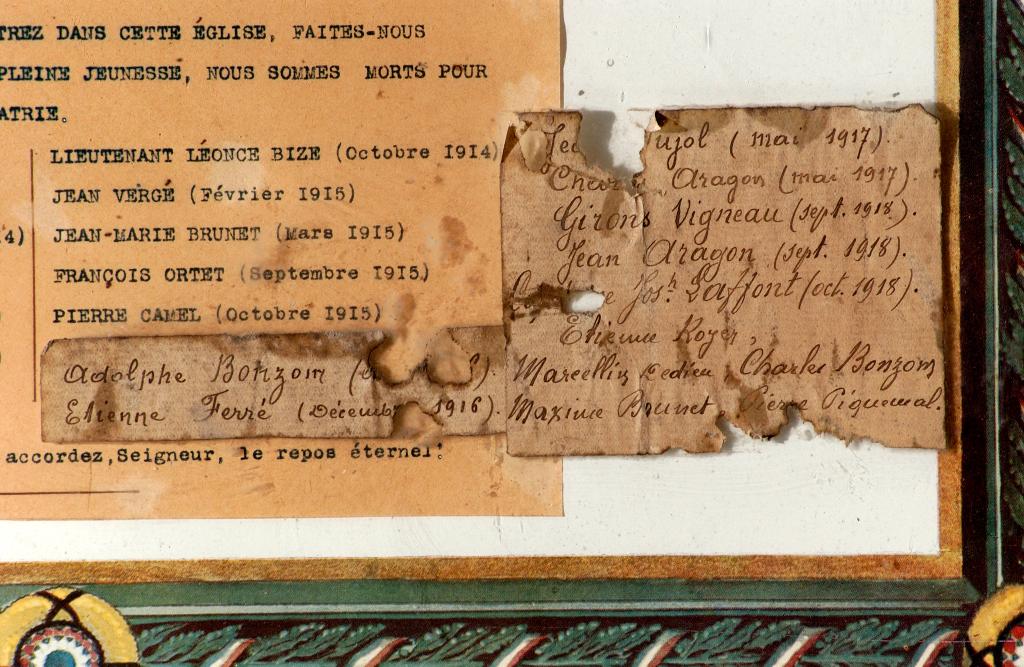 TREZ DANS CETTE ÉGLISE, FAITES-NOUS
PLEINE JEUNESSE, NOUS SOMMES MORTS POUR
ATRIE.
LIEUTENANT LÉONCE BIZE (Octobre 1914)
JEAN VERGÉ (Février 1915)
4) JEAN-MARIE BRUNET (Mars 1915)
FRANÇOIS ORTET (Septembre 1915)
PIERRE CAMEL (Octobre 1915)
Adolphe Bonzom
Etienne Ferré (Décemb 1916).
accordez, Seigneur, le repos éternel!
ujol (mai 1917).
Char Aragon (mai 1917).
Girons Vigneau (sept. 1918).
Jean Aragon (sept. 1918).
Jos.h Laffont (oct. 1918).
Etienne Roger,
Marcellin Dedieu, Charles Bonzom
Maxime Brunet, Pierre Piquemal.